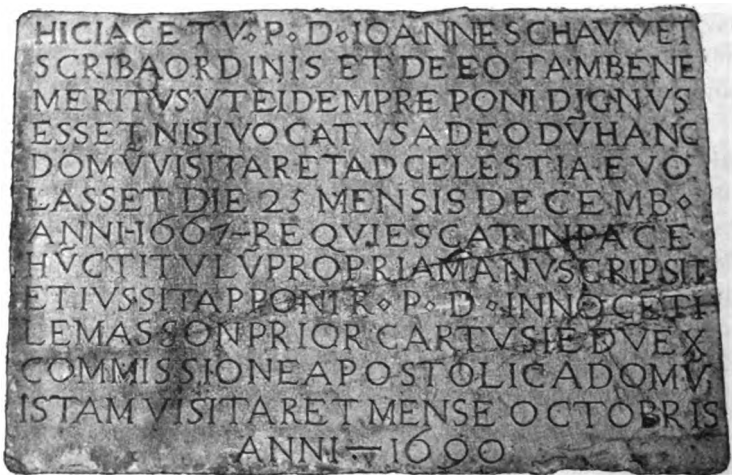 HIC IACET V⋄P⋄D⋄IOANNES CHAVVET
SCRIBA ORDINIS ET DE EO TAM BENE
MERITVS VT EIDEM PREPONI DIGNVS
ESSET NISI VOCATVS A DEO DV̄ HANC
DOMV̄ VISITARET AD CELESTIA EVO
LASSET DIE 23 MENSIS DECEMB⋄
ANNI-1667-REQVIESCAT IN PACE
HV̄C TITVLV̄ PROPRIA MANV SCRIPSIT
ET IVSSIT APPONI R⋄P⋄D⋄INNOCĒTI
LE MASSON PRIOR CARTVSIE DV̄ EX
COMMISSIONE APOSTOLICA DOMV̄
ISTAM VISITARET MENSE OCTOBRIS
ANNI—1690